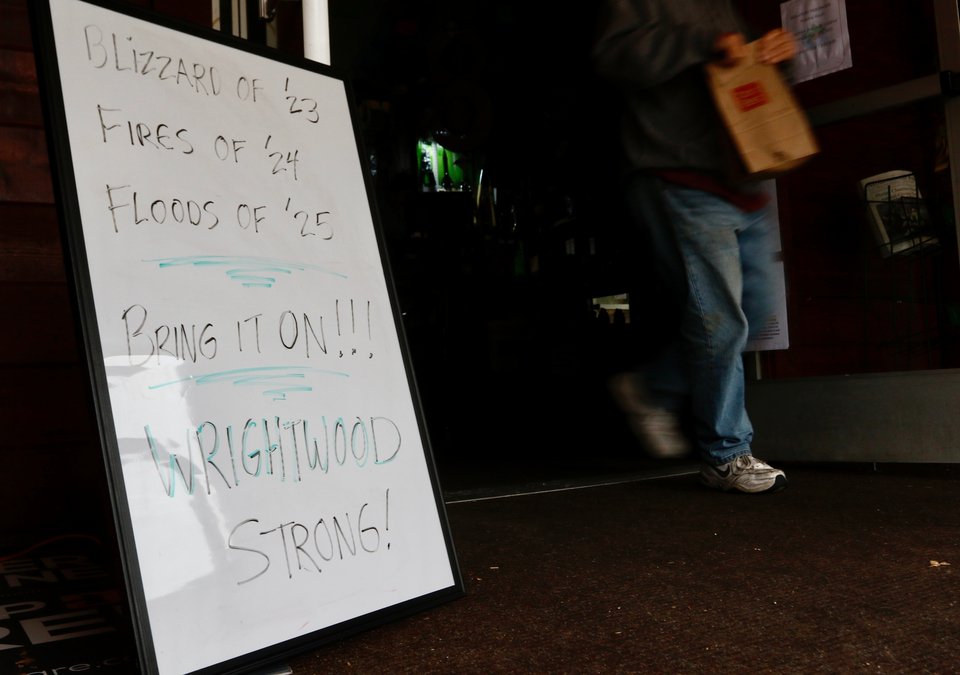 BLIZZARD OF '23
FIRES OF '24
FLOODS OF '25
BRING IT ON!!!
WRIGHTWOOD
STRONG!